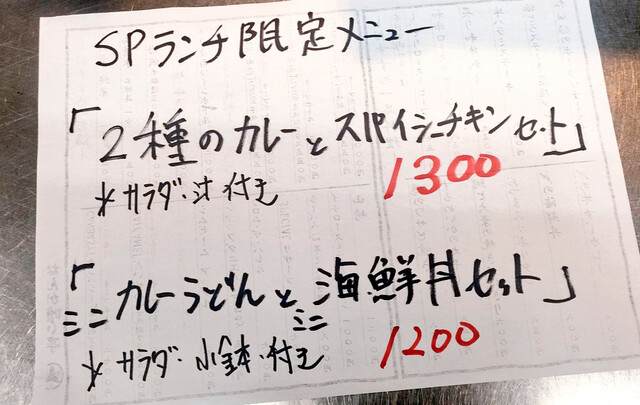 SPランチ限定メニュー
「2種のカレーとスパイシーチキンセット」
1300
*サラダ・汁付き
「ミニカレーうどんとミニ海鮮丼セット」
1200
*サラダ・小鉢・付き